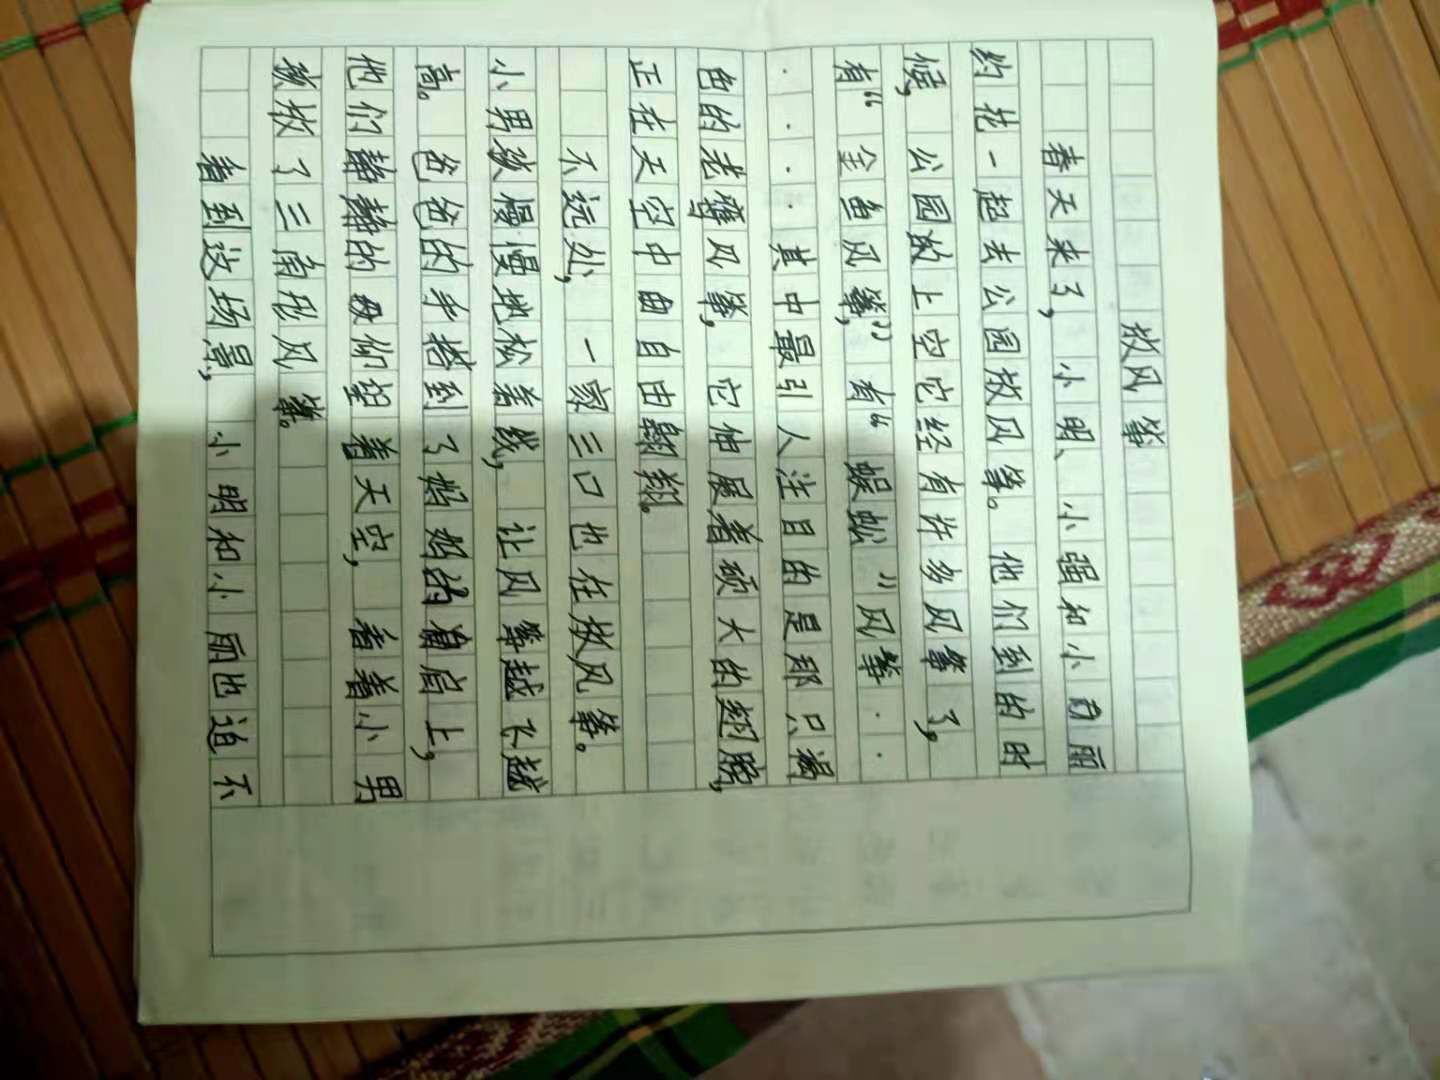 放风筝
春天来了，小明、小强和小丽
约花一起去公园放风筝。他们到的时
候，公园的上空它经有许多风筝了。
有“金鱼风筝”有“蜈蚣”风筝··
····其中最引人注目的是那只褐
色的老鹰风筝，它伸展着硕大的翅膀，
正在天空中由自由翱翔。
不远处，一家三口也在放风筝。
小男孩慢慢地松着线，让风筝越飞越
高。爸爸的手搭到了妈妈的肩上，
他们静静的仰望着天空，看着小男
孩放了三角形风筝。
看到这场景，小明和小丽也迫不